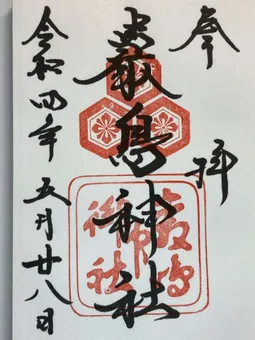 奉拝
嚴島神社
令和四年五月廿八日
嚴島
神社
御印